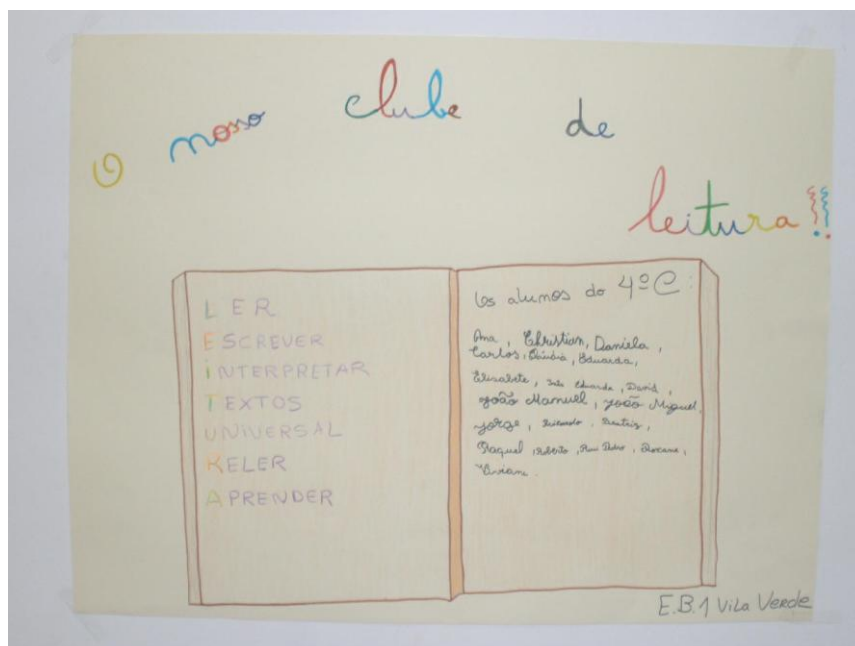 O nosso clube de
leitura!!
LER
ESCREVER
iNTERPRETAR
TEXTOS
UNiVERSAL
RELER
APRENDER
Os alunos do 4º C:
Ana, Christian, Daniela,
Carlos, Cláudia, Eduarda,
Elisabete, Inês Eduarda, David,
João Manuel, João Miguel,
Jorge, Ricardo, Beatriz,
Raquel, Roberto, Rui Pedro, Roxane,
Viviane.
E.B.1 Vila Verde